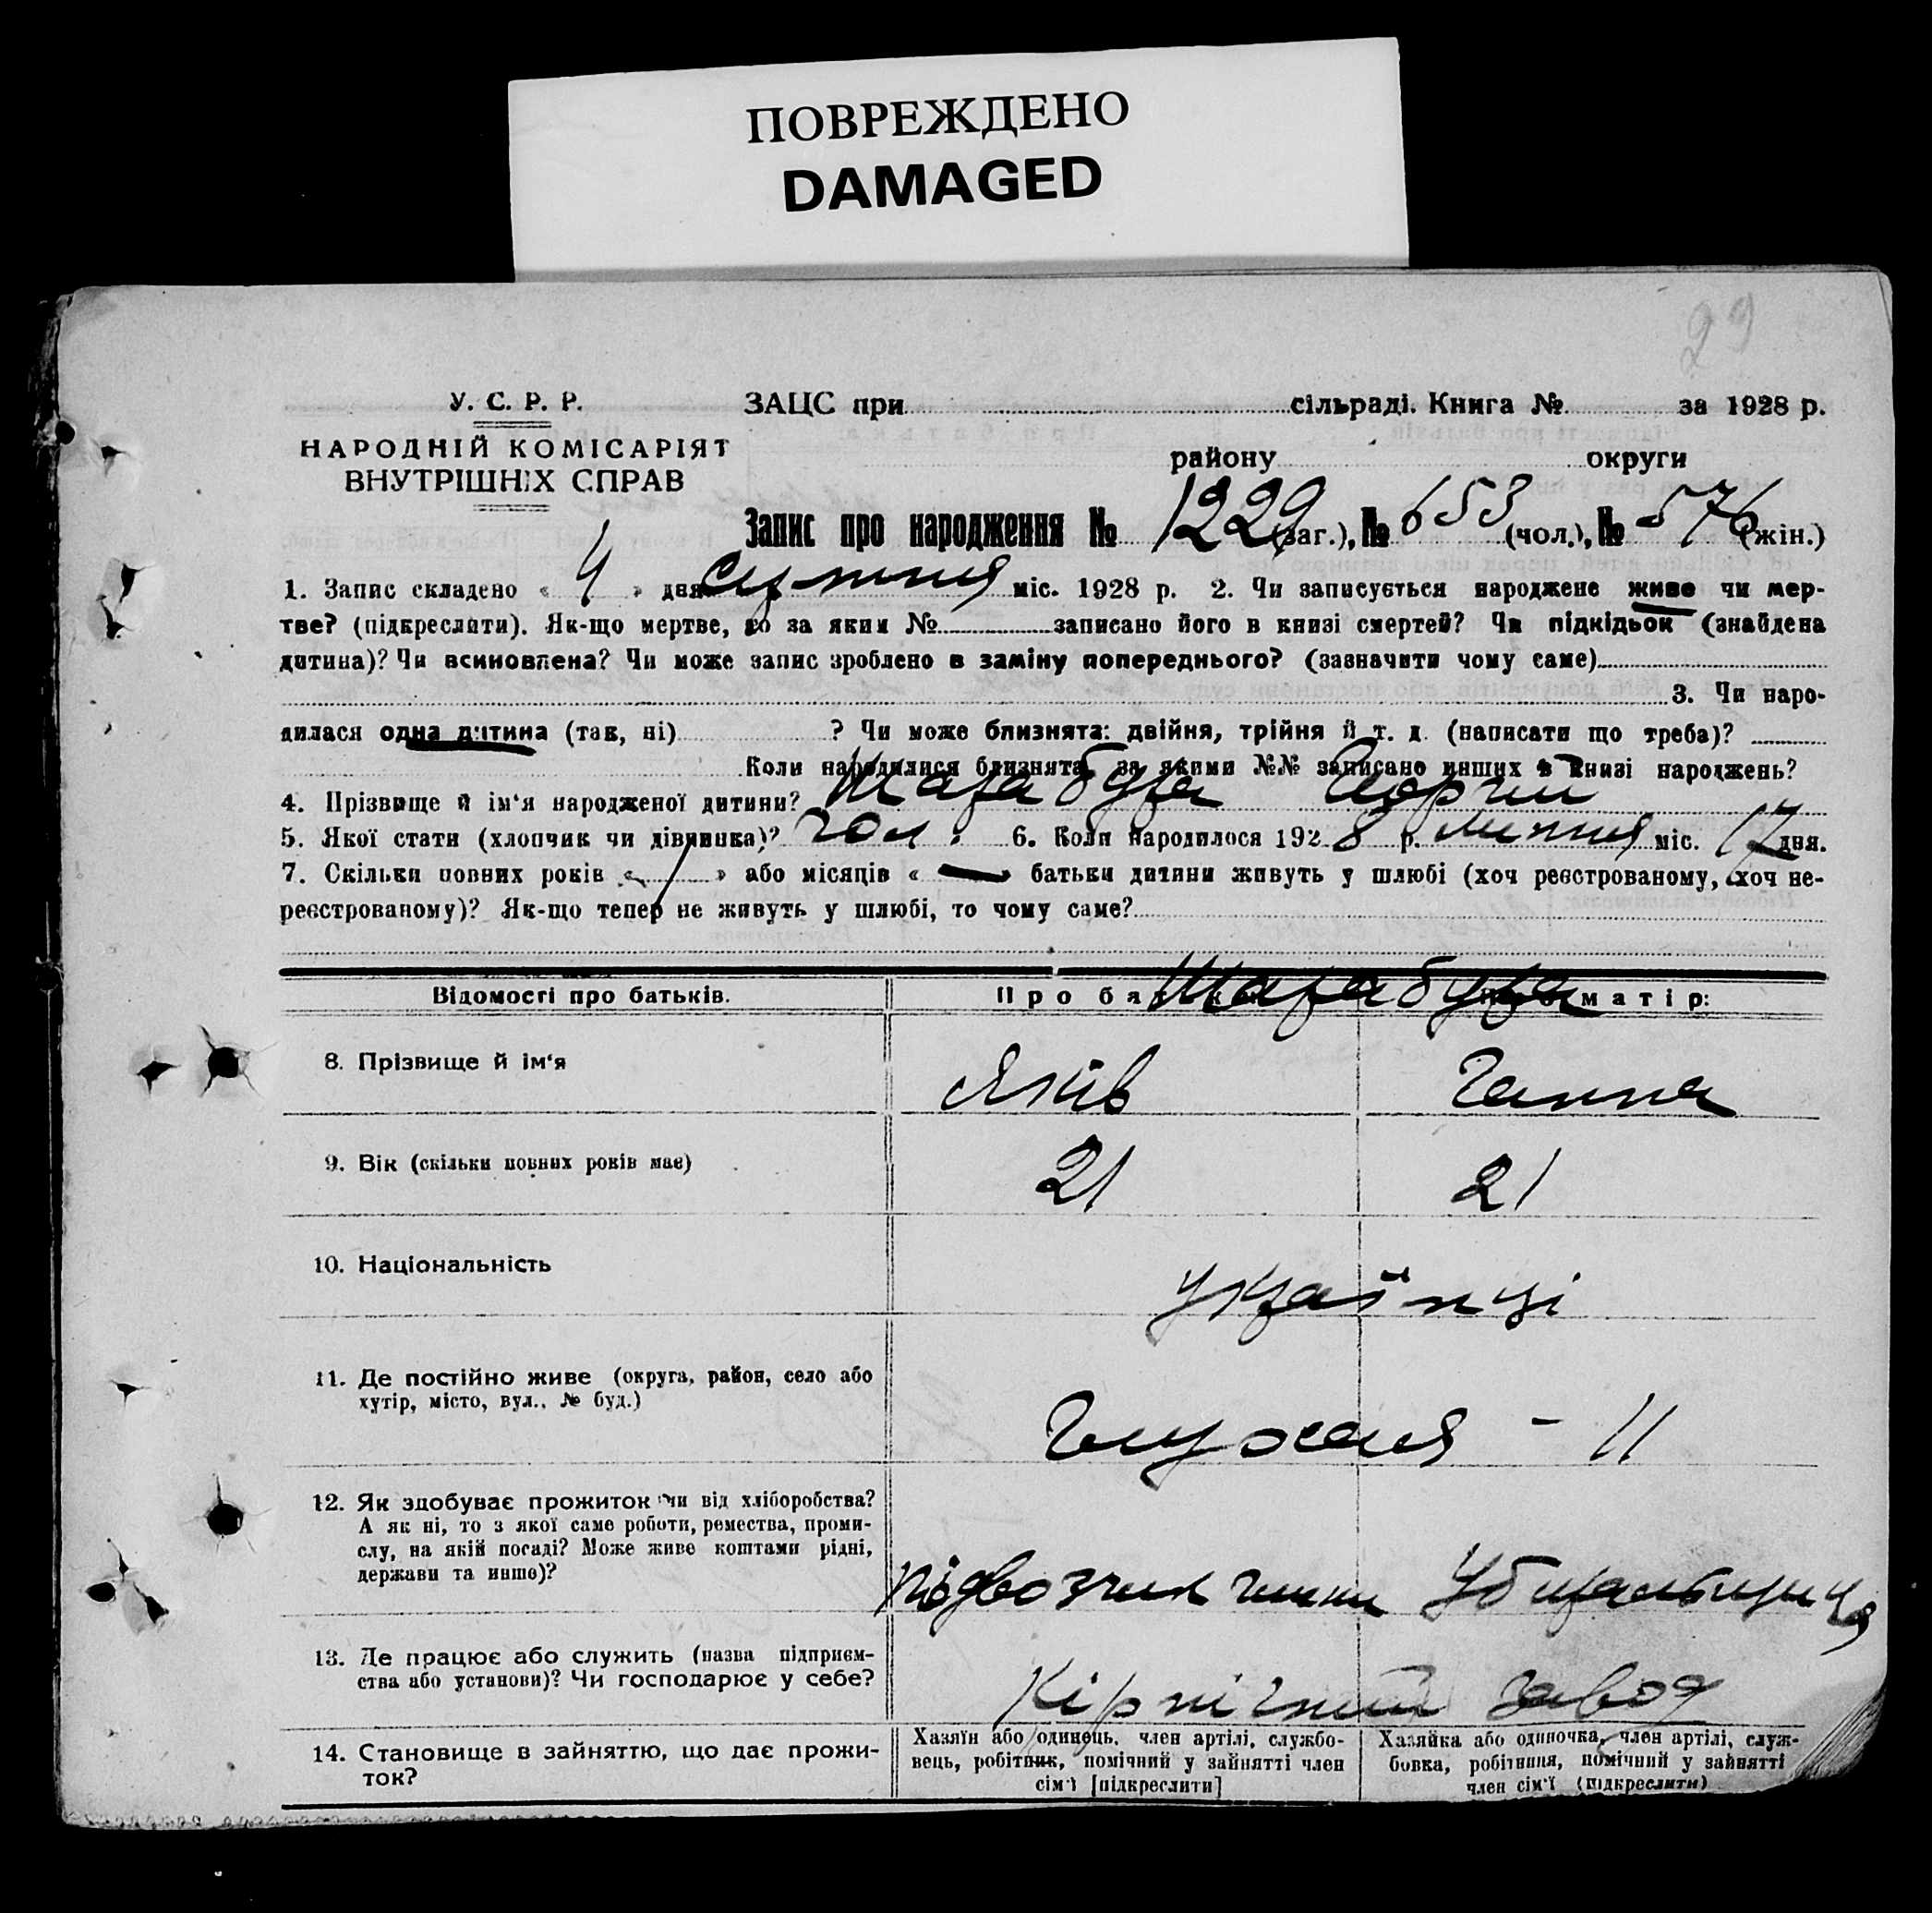 ПОВРЕЖДЕНО
DAMAGED
29
У. С. Р. Р.
НАРОДНІЙ КОМІСАРІЯТ
ВНУТРІШНІХ СПРАВ
ЗАЦС при сільраді. Книга № за 1928 р.
району округи
Запис про народження № 1229 (заг.), № 653 (чол.), № 576 (жін.)
1. Запис складено « 4 » дня серпня міс. 1928 р. 2. Чи записується народжене живе чи мер-
тве? (підкреслити). Як-що мертве, то за яким № записано його в книзі смертей? Чи підкідьок (знайдена
дитина)? Чи всиновлена? Чи може запис зроблено в заміну попереднього? (зазначити чому саме)
3. Чи наро-
дилася одна дитина (так, ні) ? Чи може близнята: двійня, трійня й т. д. (написати що треба)?
Коли народилися близнята, за якими №№ записано инших в книзі народжень?
4. Прізвище й ім‘я народженої дитини? Шарабура
5. Якої стати (хлопчик чи дівчинка)? чол. 6. Коли народилося 1928 р. липня міс. 17 дня.
7. Скільки повних років « 1 » або місяців « — » батьки дитини живуть у шлюбі (хоч реєстрованому, хоч не-
реєстрованому)? Як-що тепер не живуть у шлюбі, то чому саме?
Відомості про батьків. Про батька: Про матір:
Шарабура
8. Прізвище й ім‘я Яків Ганна
9. Вік (скільки повних років має) 21 21
10. Національність українці
11. Де постійно живе (округа, район, село або
хутір, місто, вул., № буд.)
- 11
12. Як здобуває прожиток чи від хліборобства?
А як ні, то з якої саме роботи, ремества, проми-
слу, на якій посаді? Може живе коштами рідні,
держави та инше)?
підвозчик глини Убиральщиця
13. Де працює або служить (назва підприєм-
ства або установи)? Чи господарює у себе?
Кірпічний завод
14. Становище в зайняттю, що дає прожи-
ток?
Хазяїн або одинець, член артілі, службо-
вець, робітник, помічний у зайнятті член
сім‘ї [підкреслити]
Хазяйка або одиночка, член артілі, служ-
бовка, робітниця, помічний у зайнятті
член сім‘ї (підкреслити)